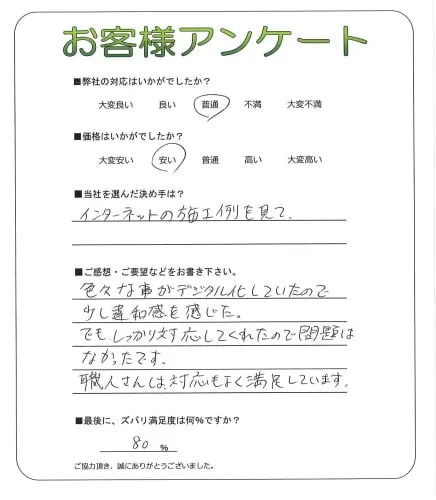 お客様アンケート
■弊社の対応はいかがでしたか？
大変良い 良い 普通 不満 大変不満
■価格はいかがでしたか？
大変安い 安い 普通 高い 大変高い
■当社を選んだ決め手は？
インターネットの施工例を見て、
■ご感想・ご要望などをお書き下さい。
色々な事がデジタル化していたので
少し違和感を感じた。
でも、しっかり対応してくれたので問題は
なかったです。
職人さんは、対応もよく満足しています。
■最後に、ズバリ満足度は何％ですか？
80 ％
ご協力頂き、誠にありがとうございました。